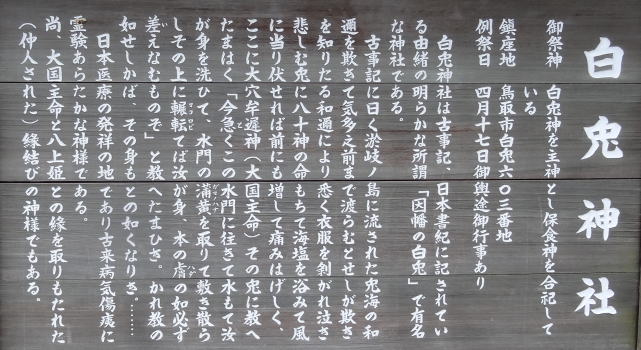 白兎神社
御祭神　白兎神を主神とし保食神を合祀して
いる
鎮座地　鳥取市白兎六〇三番地
例祭日　四月十七日御輿途御行事あり
白兎神社は古事記、日本書紀に記されてい
る由緒の明らかな所謂「因幡の白兎」で有名
な神社である。
古事記に曰く淤岐ノ島に流された兎海の和
邇を欺きて気多之前まで渡らむとせしが欺き
を知りたる和邇により悉く衣服を剝がれ泣き
悲しむ兎に八十神の命もちて海塩を浴みて風
に当り伏せれば前にも増して痛みはげしく、
ここに大穴牟遅神（大国主命）その兎に教へ
たまはく「今急くこの水門に往きて水もて汝
が身を洗ひて、水門の蒲黄を取りて敷き散ら
しその上に輾転てば汝が身　本の膚の如必ず
差えなむものぞ」と教へたまひき。かれ教の
如せしかば、その身もとの如くなりき。……
日本医療の発祥の地であり古来病気傷痍に
霊験あらたかな神様である。
尚、大国主命と八上姫との縁を取りもたれた
（仲人された）縁結びの神様でもある。